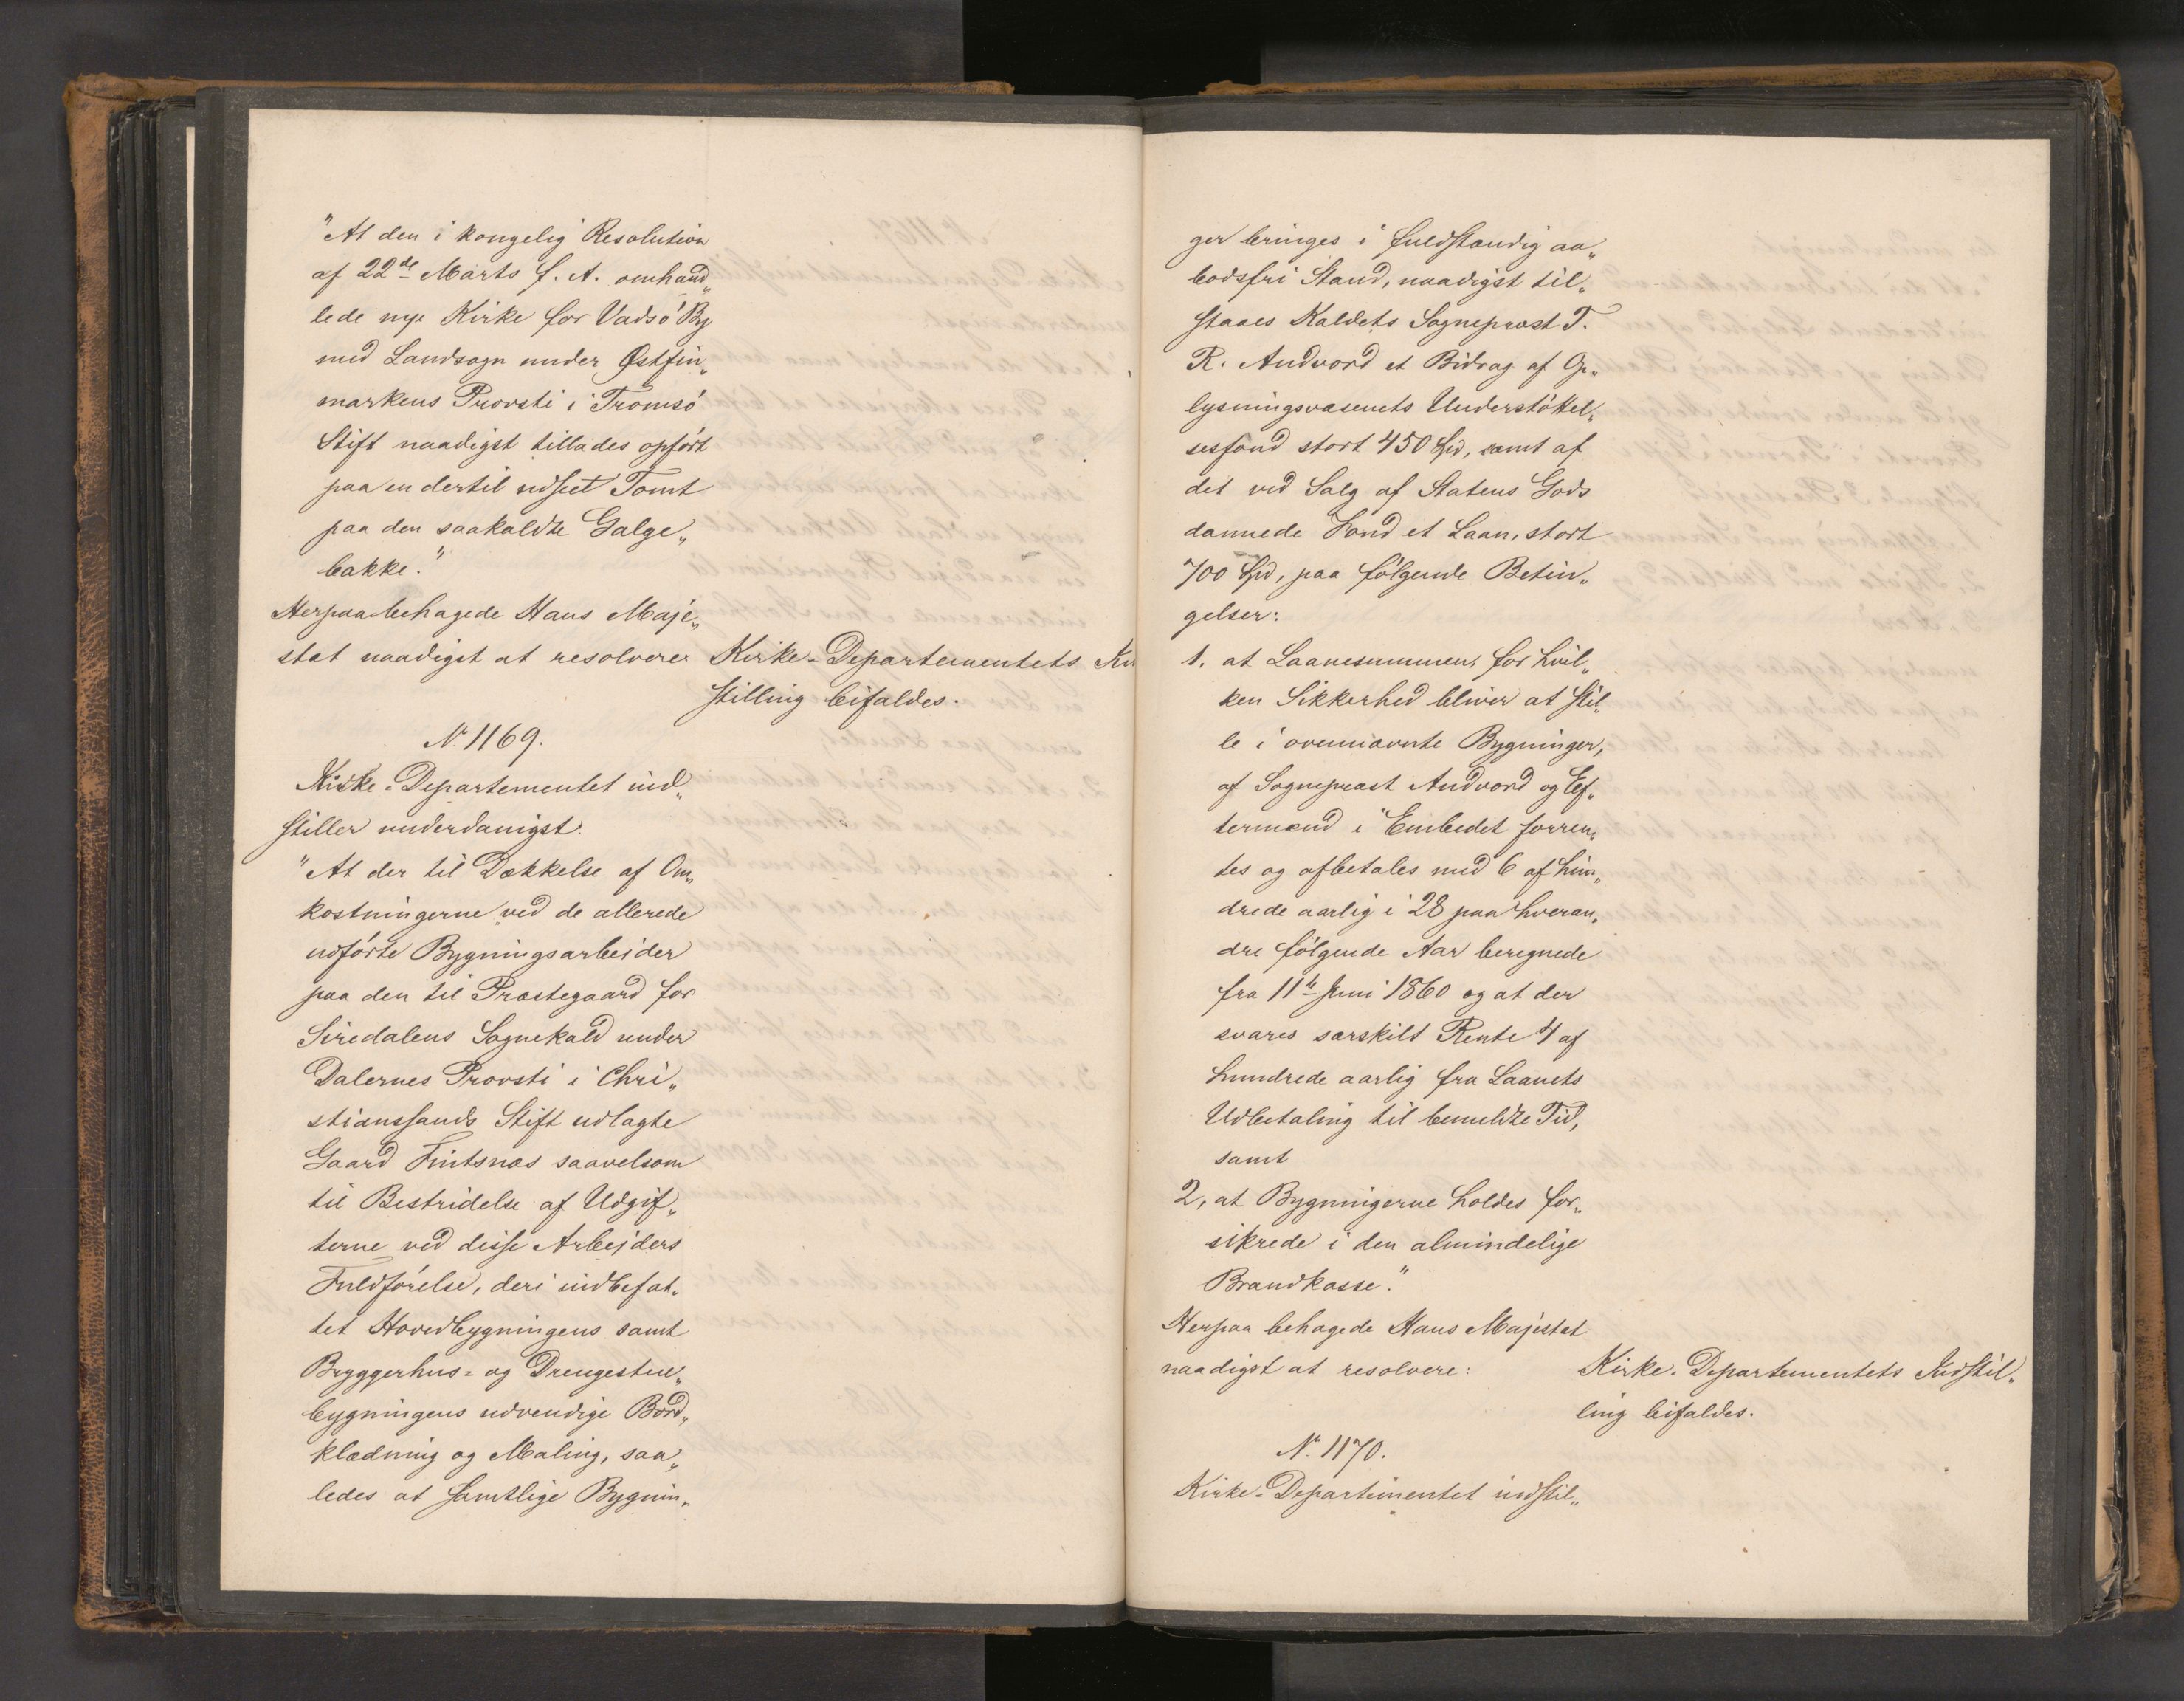 "At den i kongelig Resolution
af 22de Marts f. A. omhand„
lede nye Kirke for Vadsö By
med Landsogn under Østfin„
markens Provsti i Tromsö
Stift naadigst tillades opfört
paa en dertil udseet Tomt
paa den saakaldte Galge„
bakke."
Herpaa behagede Hans Maje„
stæt naadigst at resolvere:
Kirke-Departementets
stilling bifaldes.
No 1169.
Kirke-Departementet ind„
stiller underdanigst:
"At der til Dækkelse af Om„
kostningerne ved de allerede
udförte Bygningsarbeider
paa den til Præstegaard for
Siredalens Sognekald under
Dalernes Provsti i Chri„
stianssands Stift udlagte
Gaard Fintsnæs saavelsom
til Bestridelse af Udgif„
terne ved disse Arbejders
Fuldförelse, deri indbefat„
tet Hovedbygningens samt
Bryggerhus- og Drengestue„
bygningens udvendige Bord„
klædning og Maling, saa„
ledes at samtlige Bygnin„
ger bringes i fuldstændig aa„
bodsfri Stand, naadigst til„
staaes Kaldets Sogneprest T.
R. Andvord et Bidrag af Op„
lysningsvæsenets Understöttel„
sesfond stort 450 Spd, samt af
det ved Salg af Statens Gods
dannede Fond et Laan, stort
700 Spd, paa fölgende Betin„
gelser:
1. at Laanesummen, for hvil„
ken Sikkerhed bliver at stil„
le i ovennævnte Bygninger,
af Sogneprest Andvord og Ef„
termænd i Embedet forren„
tes og afbetales med 6 af hun„
drede aarlig i 28 paa hveran„
dre fölgende Aar beregnede
fra 11te Juni 1860 og at der
svares særskilt Rente 4 af
hundrede aarlig fra Laanets
Udbetaling til bemeldte Tid,
samt
2, at Bygningerne holdes for„
sikrede i den almindelige
Brandkasse."
Herpaa behagede Hans Majestæt
naadigst at resolvere:
Kirke-Departementets Indstil„
ling bifaldes.
No 1170.
Kirke-Departementet indstil„